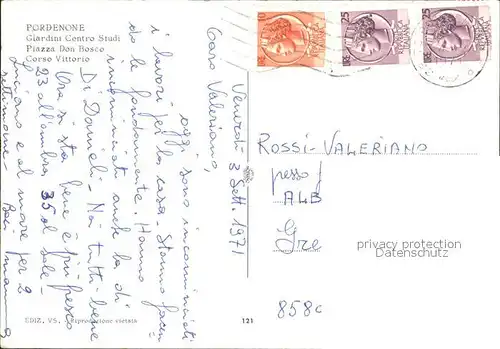 PORDENONE
Giardini Centro Studi
Piazza Don Bosco
Corso Vittorio
Venerdì 3 Sett 1971
Caro Valeriano,
oggi sono incominciati
i lavori per la casa. Stanno facen
do le fondamenta. Hanno
incominciati anche la di
Di Daniele. Noi tutti bene
Ora si sta bene è più fresco
23 all'ombra 35 al sole.
Luciano è al mare per 2
settimane. Baci mamma
ROSSI-VALERIANO
presso
ALB
Gre
858c
privacy protection
Datenschutz
EDIZ. VS. riproduzione vietata
121